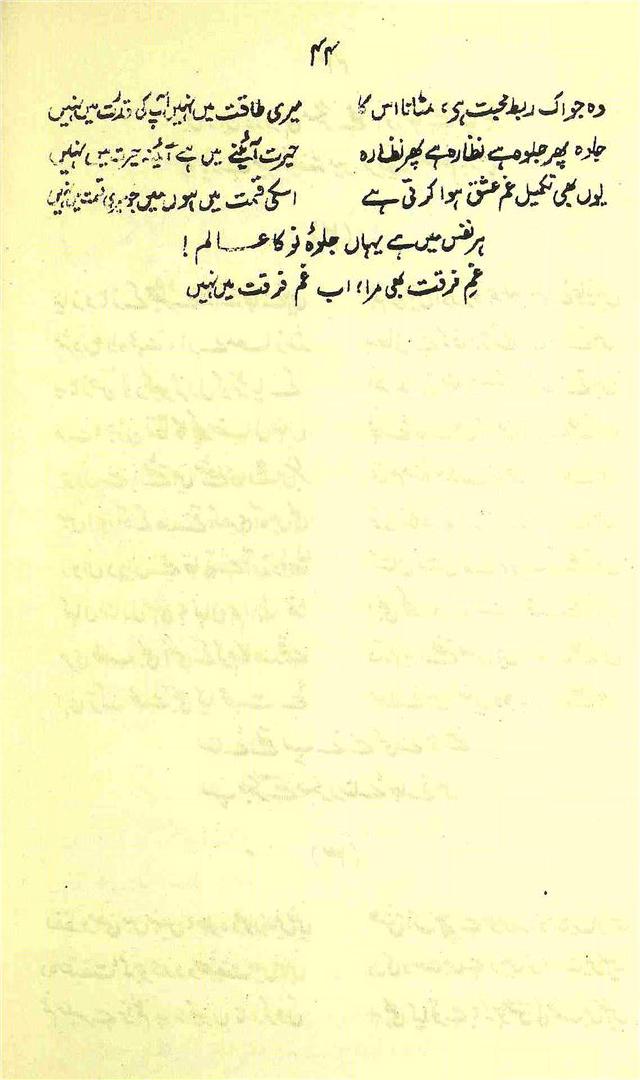 ۴۴
وہ جو اک ربط محبت ہی، مٹانا اس کا میری طاقت میں نہیں آپ کی قدرت میں نہیں
جلوہ پھر جلوہ ہے نظارہ ہے پھر نظارہ حیرت آئینے میں ہے آئینہ حیرت میں نہیں
یوں بھی تکمیل غم عشق ہوا کرتی ہے اسکی قسمت میں ہوں میں جو میری قسمت میں نہیں
ہر نفس میں ہے یہاں جلوۂ نو کا عالم!
غمِ فرقت بھی مرا، اب غم فرقت میں نہیں